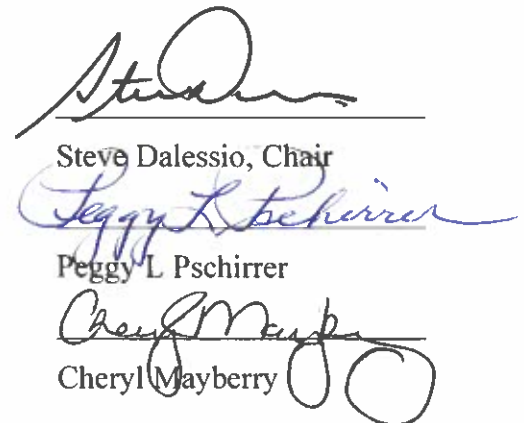 Steve Dalessio, Chair
Peggy L Pschirrer
Peggy L Pschirrer
Cheryl Mayberry
Cheryl Mayberry